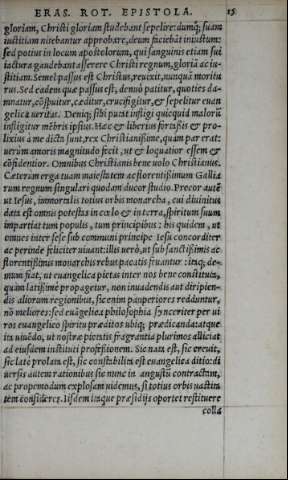 ERAS. ROT. EPISTOLA. 15
gloriam, Christi gloriam studebant sepelire: dumq́; suam
iustitiam nirebantur approbare, deum faciebāt iniustum:
sed potius in locum apostolorum, qui sanguinis etiam sui
iactura gaudebant asserere Christi regnum, gloriā ac iu-
stitiam. Semel passus est Christus, reuixit, nunquā moritu
rus. Sed eadem quæ passus est, denuò patitur, quoties da-
mnatur, cōspuitur, cæditur, crucifigitur, & sepelitur euan
gelica ueritas. Deniq; sibi putat infligi quicquid malorū
infligitur mēbris ipsius. Hæc & liberius fortaßis & pro-
lixius à me dicta sunt, rex Christianißime, quàm par erat:
uerùm amoris magnitudo fecit, ut & loquatior essem &
cōfidentior. Omnibus Christianis bene uolo Christianus.
Cæterùm erga tuam maiestatem ac florentißimum Galliæ
rum regnum singulari quodam ducor studio. Precor autē
ut Iesus, immortalis totius orbis monarcha, cui diuinitus
data est omnis potestas in cœlo & in terra, spiritum suum
impartiat tum populis, tum principibus: his quidem, ut
omnes inter sese sub communi principe Iesu concorditer
ac perinde feliciter uiuant: illis uerò, ut sub sanctißimis ac
florentißimis monarchis rebus pacatis fruantur: itaq; de-
mum fiat, ut euangelica pietas inter nos bene constituta,
quàm latißimè propagetur, non inuadendis aut diripien-
dis aliorum regionibus, sic enim pauperiores redduntur,
nō meliores: sed euāgelica philosophia syncerriter per ui
ros euangelico spiritu præditos ubiq; prædicanda: atque
ita uiuēdo, ut nostræ pietatis fragrantia plurimos alliciat
ad eiusdem instituti professionem. Sic nata est, sic creuit,
sic latè prolata est, sic constabilita est euangelica ditio: di
uersis autem rationibus sic nunc in angustū contractam,
ac propemodum explosam uidemus, si totius orbis uastita
tem cōsideres. Iisdem itaque præsidijs oportet restituere
colla